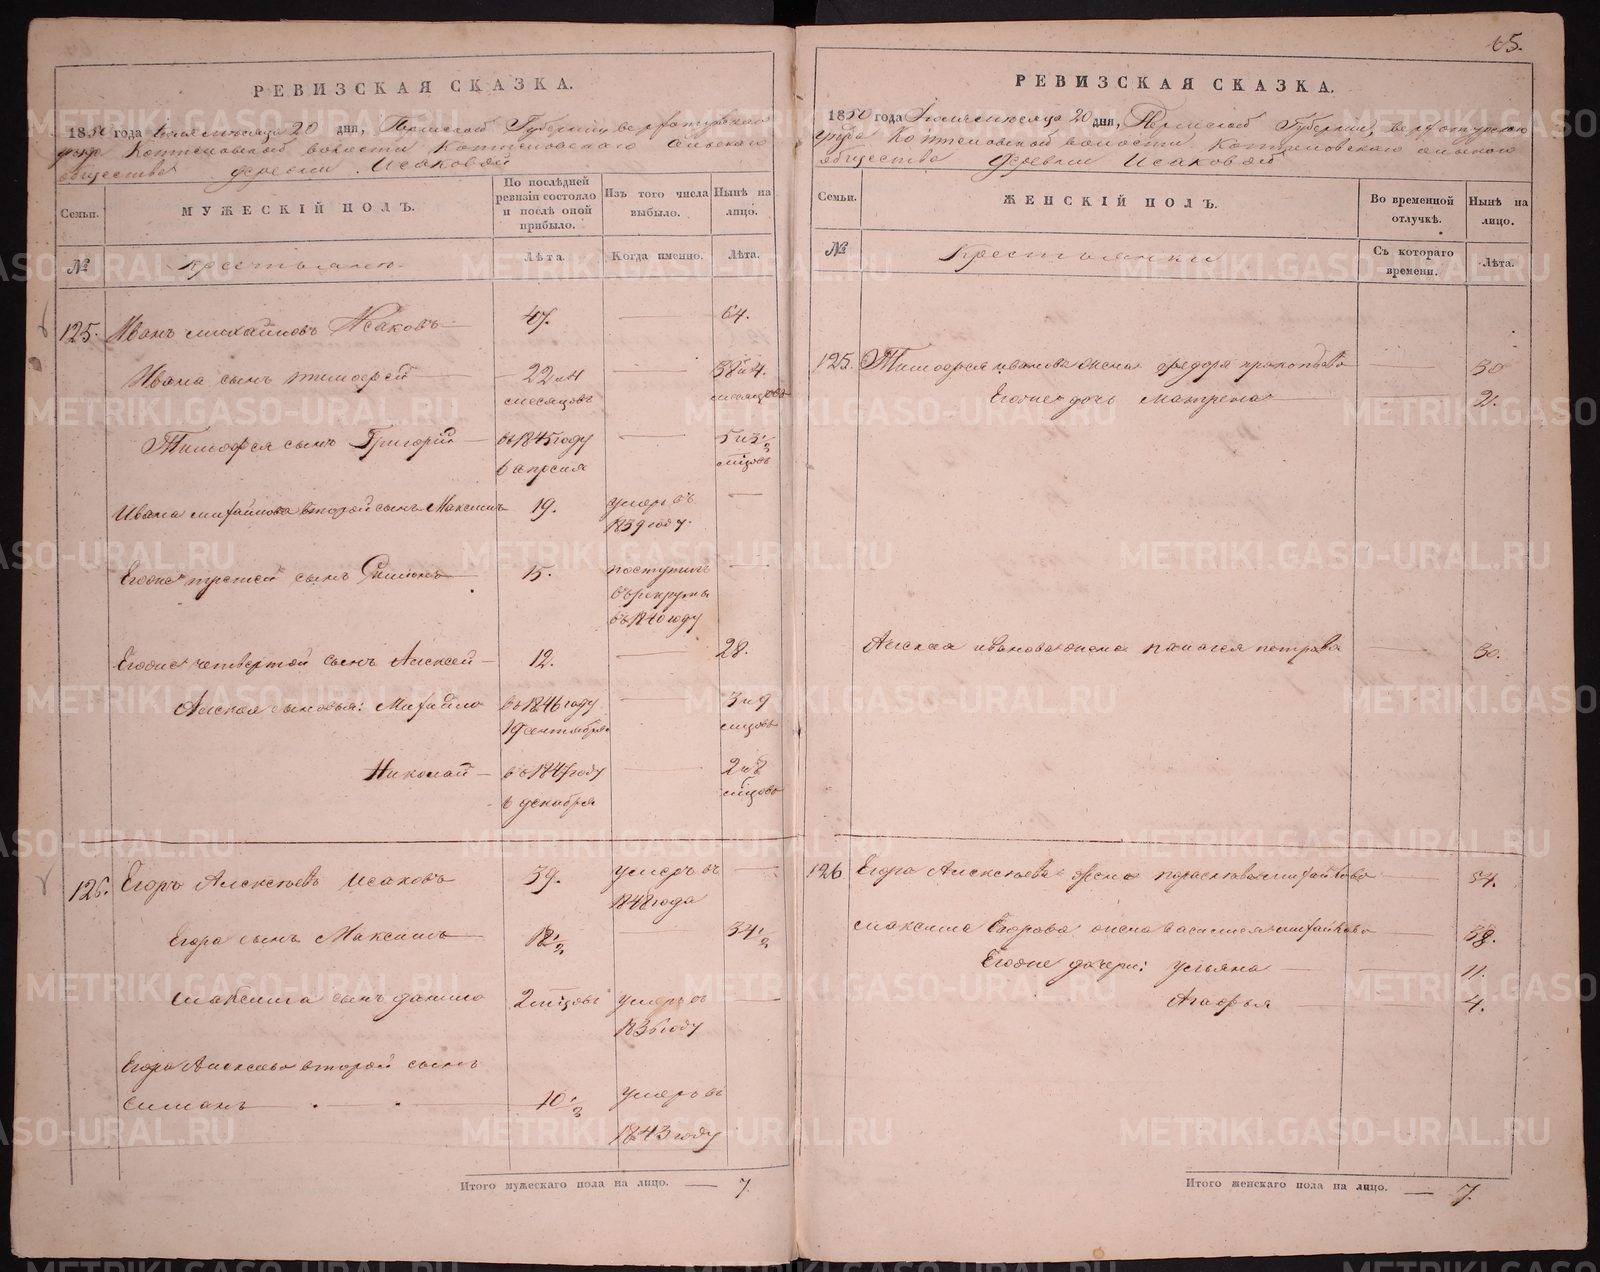 65.
РЕВИЗСКАЯ СКАЗКА.
1850 года 20 дня, Пермской Губернии Верхотурскаго
уезда Коптеловской волости Коптеловскаго сельскаго
общества деревни Исаковой
Семьи.
МУЖЕСКІЙ ПОЛЪ.
По послѣдней ревизіи состояло и послѣ оной прибыло.
Изъ того числа выбыло.
Нынѣ на лицо.
№
Крестьяне
Лѣта.
Когда именно.
Лѣта.
125. Иванъ Михайловъ Исаковъ 47. — 64.
Ивана сынъ Тимофей — 22 и 4 месяцовъ — 38 и 4. месяцовъ
Тимофея сынъ Григорій — въ 1845 году 6 апреля — 5 и 3 1/2 мѣсцовъ
Ивана Михайлова второй сынъ Максимъ 19. умеръ въ 1839 году —
Егоже третей сынъ Симонъ 15. поступилъ въ рекруты въ 1840 году —
Егоже четвертой сынъ Алексей — 12. — 28.
Алексея сыновья: Михайло въ 1846 году 19 сентября — 3 и 9 мѣсцовъ
Николай — въ 1847 году 6 декабря — мѣсцовъ
126. Егоръ Алексѣевъ Исаковъ 39. умеръ въ 1848 года —
Егора сынъ Максимъ 18 1/2 — 34 1/2
Максима сынъ Данило 2 мѣсцовъ умеръ въ 1836 году —
Егора Алексѣева второй сынъ
Симонъ 10 1/2 умеръ въ 1843 году
Итого мужескаго пола на лицо. — 7.
РЕВИЗСКАЯ СКАЗКА.
1850 года 20 дня, Пермской Губернии, Верхотурскаго
уезда Коптеловской волости Коптеловскаго сельскаго
общества деревни Исаковой
Семьи.
ЖЕНСКІЙ ПОЛЪ.
Во временной отлучкѣ.
Нынѣ на лицо.
№
Крестьянки
Съ котораго времени.
Лѣта.
125. Тимофея Иванова жена Федора Прокопьева — 30
Егоже дочь Матрена — 2.
Алексея Иванова жена Палагея Петрова — 30.
126 Егора Алексѣева жена Парасковья Михайлова — 54.
Максима Егорова жена Василиса Михайлова — 38.
Егоже дочери: Ульяна — 11.
Агафья — 4.
Итого женскаго пола на лицо. — 7.